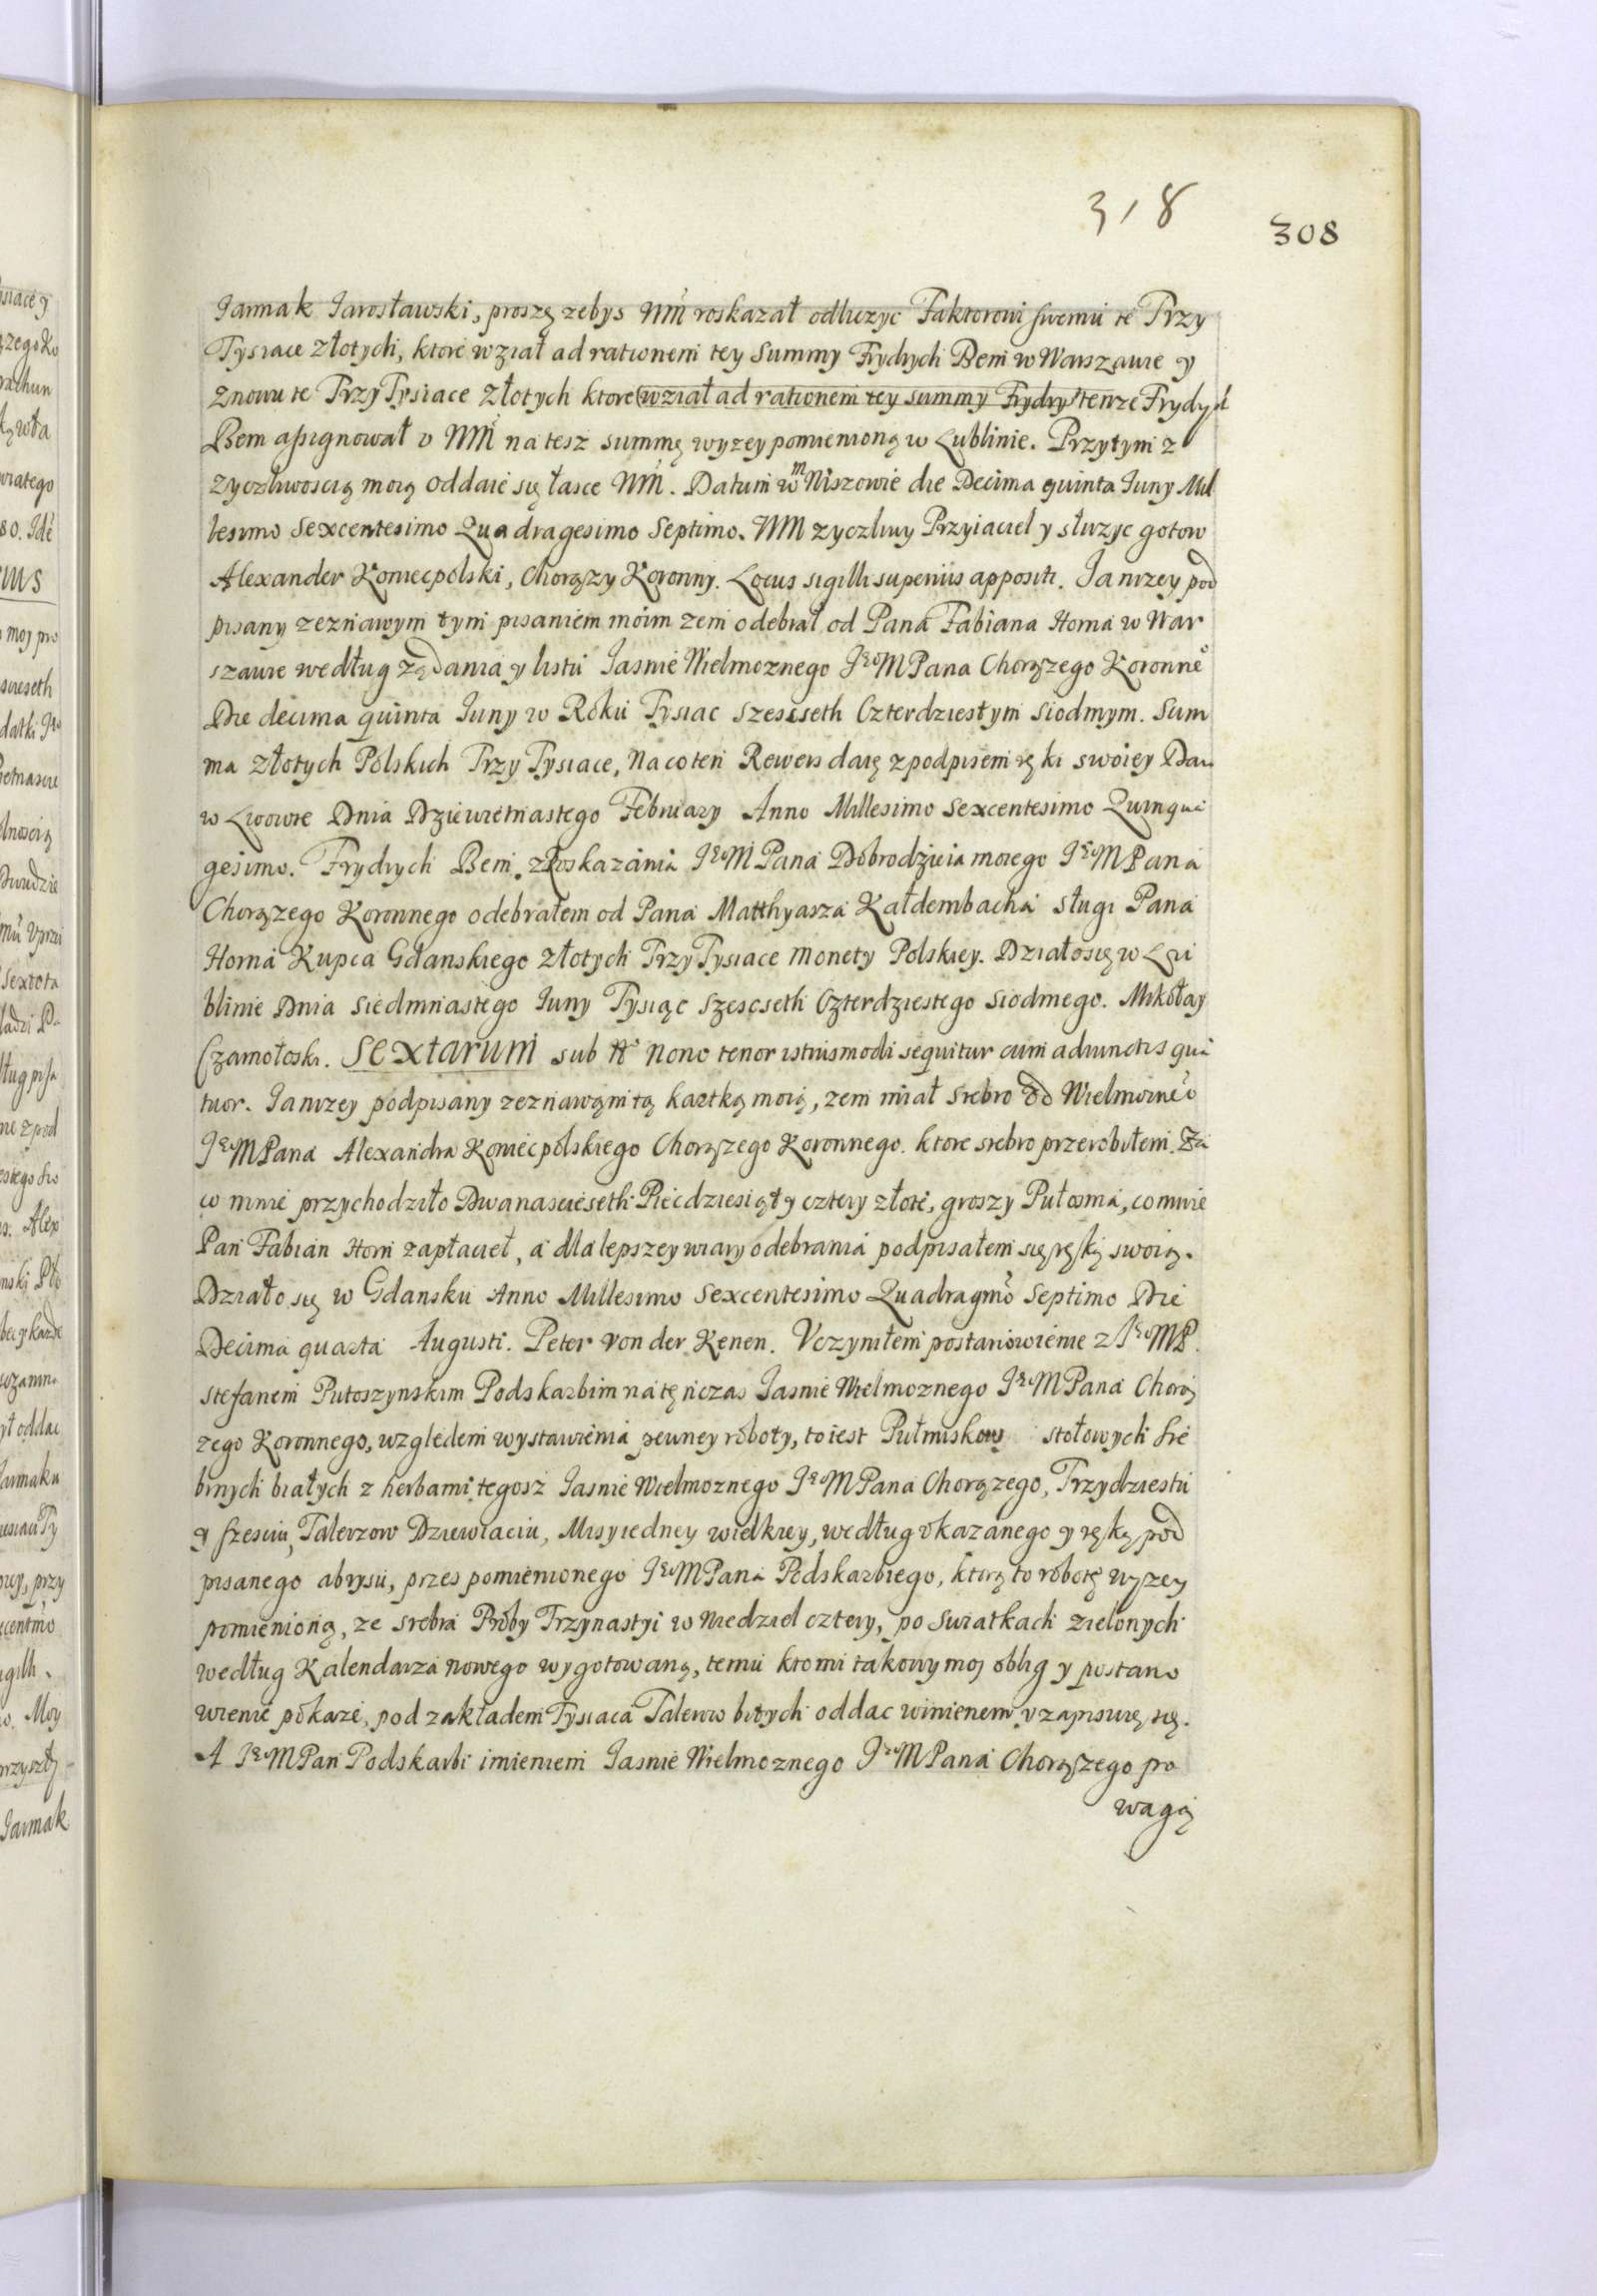 318
308
Iarmak Iarosławski, proszę zebys WM roskazał odliczyc Faktorowi swemu te Trzy
Tysiace złotych, ktore wział ad rationem tey Summy Frydrych Bem w Warszawie y
znowu te Trzy Tysiace złotych ktore wział ad rationem tey summy Frydry tenze Frydych
Bem assignował v WM na tesz summę wyzey pomienioną w Lublinie. Przytym z
zyczliwoscią moią oddaie się łasce WM. Datum w Niszowie die Decima quinta Iuny Mil
lesimo Sexcentesimo Quadragesimo Septimo. WM zyczliwy Przyiaciel y słuzyc gotow
Alexander Koniecpolski, Chorązy Koronny. Locus sigilli superius appositi. Ia nizey pod
pisany zeznawym tym pisaniem moim zem odebrał od Pana Fabiana Horna w War
szawie według ządania y listu Iasnie Wielmoznego IeoM Pana Chorązego Koronneo
Die decima quinta Iuny w Roku Tysiac szescseth Czterdziestym siodmym. Sum
ma złotych Polskich Trzy Tysiace, na co ten Rewers daię z podpisem ręki swoiey Dan
w Lwowie Dnia Dziewietnastego February Anno Millesimo Sexcentesimo Quinqua
gesimo. Frydrych Bem. z Roskazania IeoM Pana Dobrodzieia moiego IeoM Pana
Chorązego Koronnego odebrałem od Pana Matthyasza Kałdembacha sługi Pana
Horna Kupca Gdanskiego złotych Trzy Tysiace Monety Polskiey. Działo się w Lu
blinie Dnia siedmnastego Iuny Tysiąc szescseth Czterdziestego siodmego. Mikołay
Czamołoski. Sextarum sub No Nono tenor istiusmodi sequitur cum adiunctis qua
tuor. Ia nizey podpisany zeznawąm tą kartką moią, zem miał srebro od Wielmozneo
IeoM Pana Alexandra Koniecpolskiego Chorązego Koronnego. ktore srebro przerobiłem. Za
co mnie przychodziło Dwanascieseth Piecdziesiąt y cztery złote, groszy Puł osma, co mnie
Pan Fabian Horn zapłacieł, a dla lepszey wiary odebrania podpisałem się ręką swoią.
Działo się w Gdansku Anno Millesimo Sexcentesimo Quadragmo Septimo Die
Decima quarta Augusti. Peter von der Renen. Vczyniłem postanowienie z IeoMP.
Stefanem Putoszynskim Podskarbim na tę nczas Iasnie Wielmoznego IeoM Pana Chorą
zego Koronnego, względem wystawienia pewney roboty, to iest Pułmiskow stołowych sre
brnych białych z herbami tegosz Iasnie Wielmoznego IeoM Pana Chorązego, Trzydziestu
y szesciu, Talerzow Dziewiaciu, Misy iedney wielkiey, według vkazanego y ręką pod
pisanego abrysu, przes pomienionego IeoM Pana Podskarbiego, ktorą to robotę wyzey
pomienioną, ze srebra Proby Trzynastyi w Niedziel cztery, po Swiatkach zielonych
według Kalendarza nowego wygotowaną, temu kto mi takowy moj oblig y postano
wienie pokaze, pod zakładem Tysiaca Talerow bitych oddac winienem y zapisuię się.
A IeoM Pan Podskarbi imieniem Iasnie Wielmoznego IeoM Pana Chorązego pro
wagą